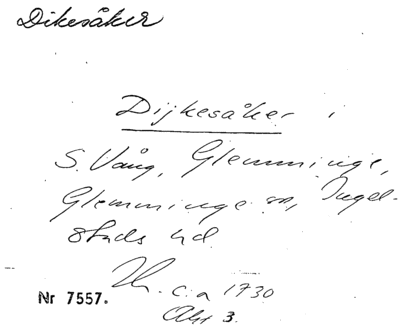 Dikesåker
Dijkesåker i
S. Vång, Glemminge,
Glemminge sn, Ingel-
stads hd.
c:a 1730
Nr 7557.
Akt 3.